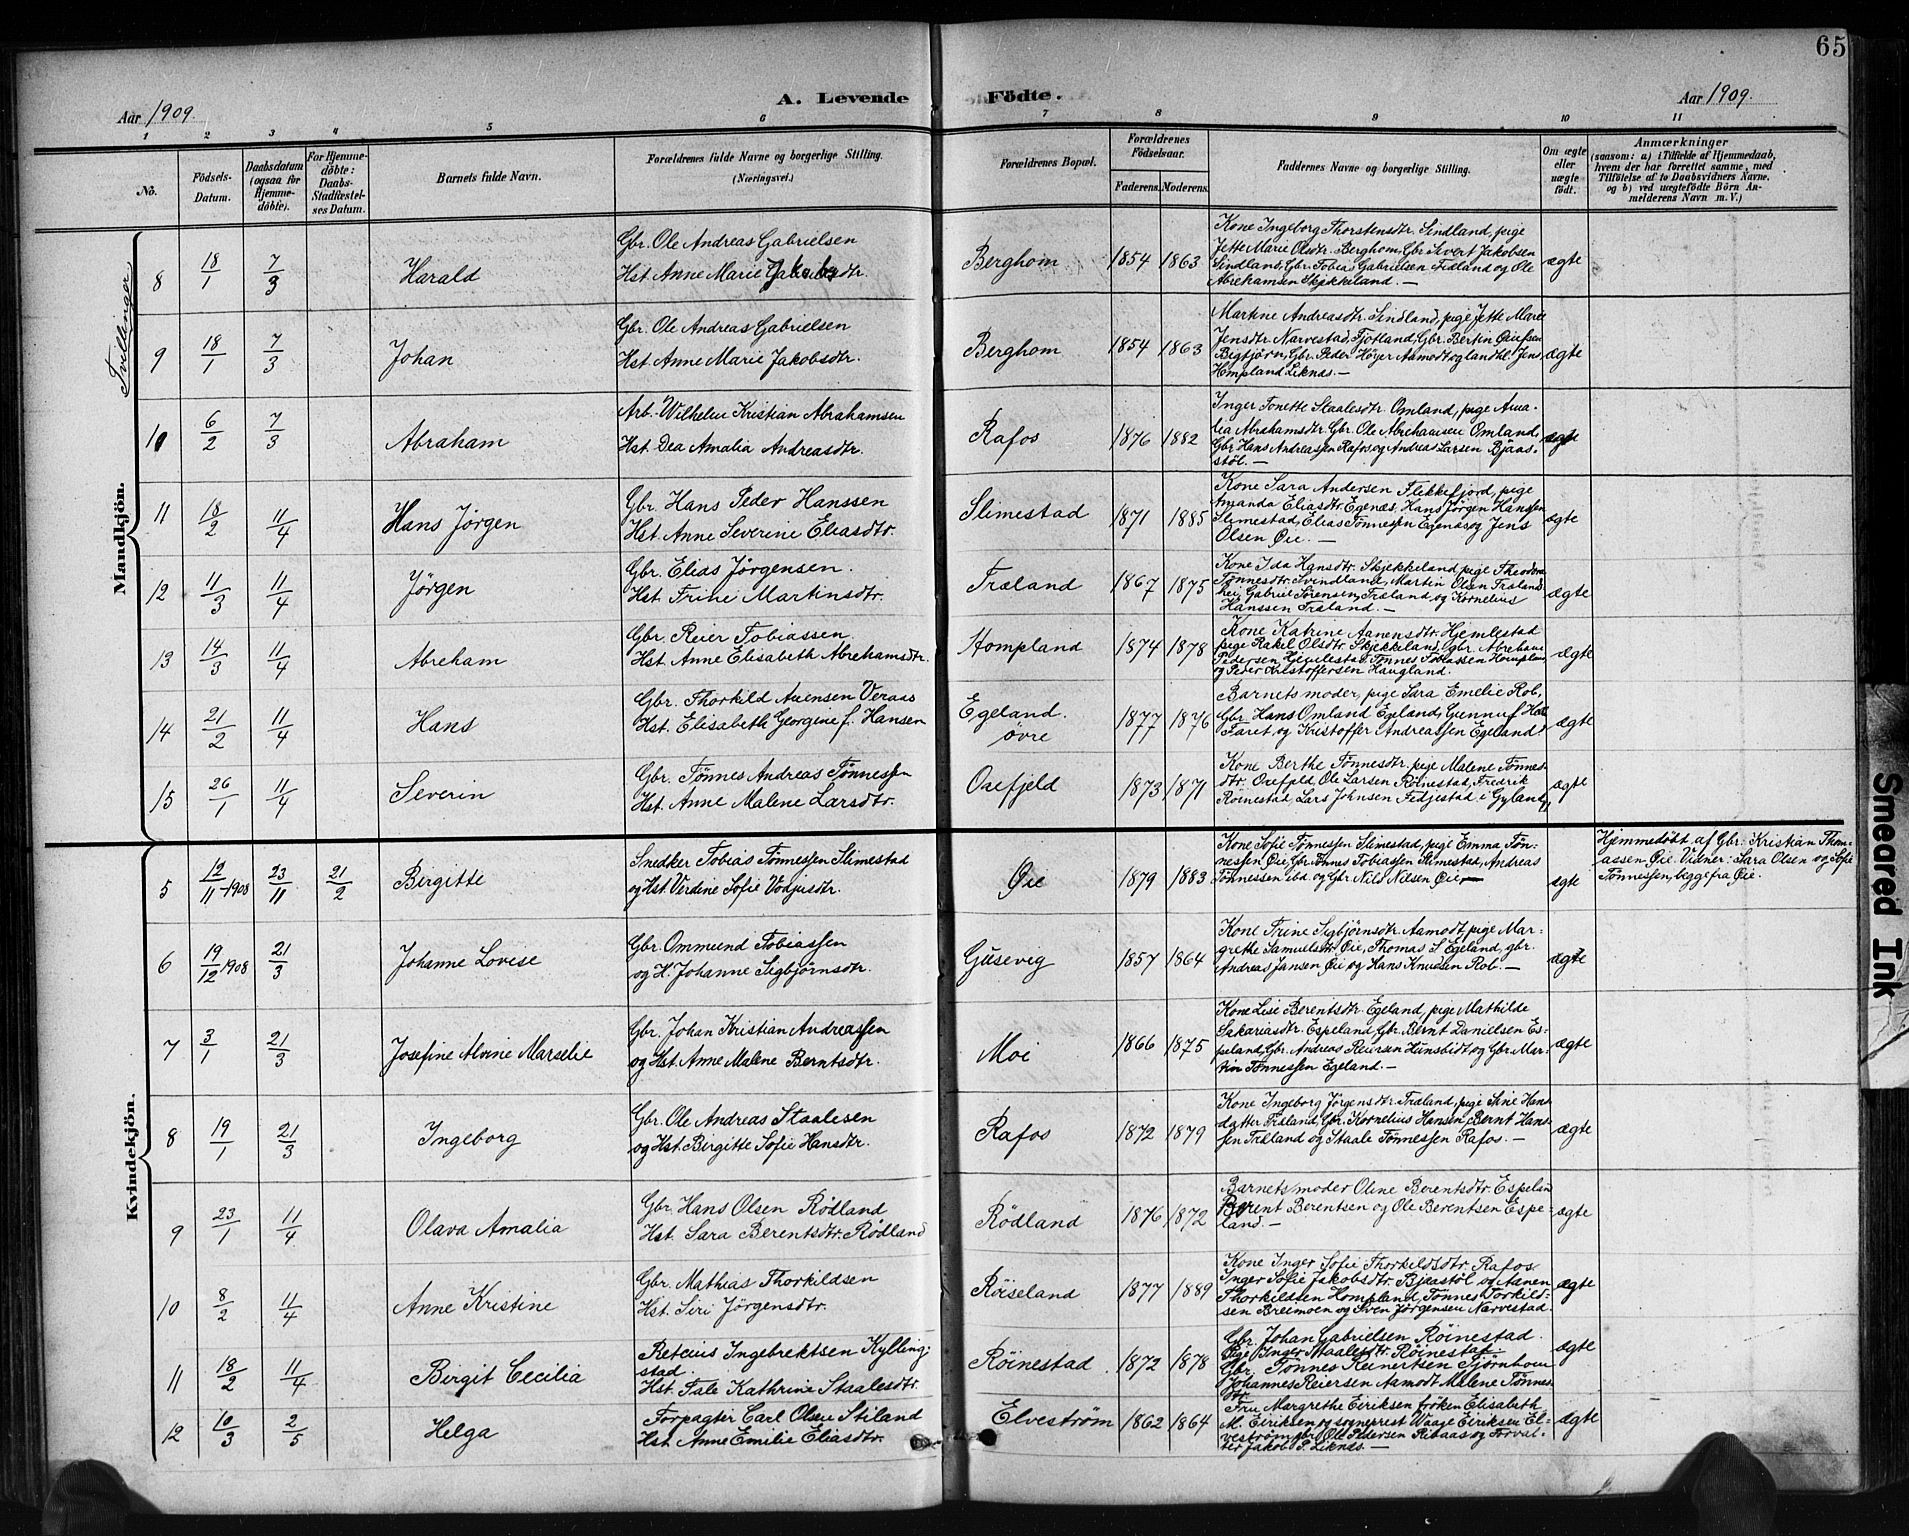 65
Aar 1909.
A. Levende Födte.
Aar 1909.
1 2 3 4 5 6 7 8 9 10 11
No.
Födsels-Datum.
Daabsdatum (ogsaa for Hjemme-döbte).
For Hjemme-döbte: Daabs-Stadfæstel-ses Datum.
Barnets fulde Navn.
Forældrenes fulde Navne og borgerlige Stilling.
(Næringsvei.)
Forældrenes Bopæl.
Forældrenes Födselsaar.
Faderens. Moderens.
Faddernes Navne og borgerlige Stilling.
Om ægte eller uægte födt.
Anmærkninger
(saasom: a) i Tilfælde af Hjemmedaab,
hvem der har forrettet samme, med
Tilföielse af to Daabsvidners Navne,
og b) ved uægtefödte Börn An-
melderens Navn m. V.)
Mandkjön.
Tvillinger
8 18/1 7/3 Harald
Gbr. Ole Andreas Gabrielsen
Hst. Anne Marie Jakobsdtr.
Berghom 1854 1863
Kone Ingeborg Thorstensdtr. Sindland, pige
Jette Marie Olsdtr. Berghom, Gbr. Sivert Jakobsen
Sindland, Gbr. Tobias Gabrielsen Fidland og Ole
Abrehamsen Skjekkeland. —
ægte
9 18/1 7/3 Johan
Gbr. Ole Andreas Gabrielsen
Hst. Anne Marie Jakobsdtr.
Berghom 1854 1863
Martine Andreasdtr. Sindland, pige Jette Marie
Jensdtr. Narvestad, Fjotland, Gbr. Bertin
Gbr. Peder Høyer Aamodt og landhl. Jens
Hompland Liknes. —
ægte
10 6/2 7/3 Abraham
Arb. Wilhelm Kristian Abrahamsen
Hst. Dea Amalia Andreasdtr.
Rafos 1876 1882
Inger Tonette Staalesdtr. Omland, pige Ama-
lea Abrahamsdtr. Gbr. Ole Abrehamsen Omland,
Gbr. Hans Andreassen Rafos og Andreas Larsen Bjaas-
støl. —
ægte
11 18/2 11/4 Hans Jörgen
Gbr. Hans Peder Hanssen
Hst. Anne Severine Eliasdtr.
Slimestad 1871 1885
Kone Sara Andersen Flekkefjord, pige
Amanda Eliasdtr. Egenæs, Hans Jørgen Hanssen
Slimestad, Elias Tønnessen Egenæs og Jens
Olsen Øie. —
ægte
12 11/3 11/4 Jørgen
Gbr. Elias Jørgensen.
Hst. Trine Martinsdtr.
Træland 1867 1875
Kone Ida Hansdtr. Skjekkeland, pige Theodora
Tønnesdtr. Svindland, Martin Olsen Træland-
hei, Gabriel Sørensen, Træland og Kornelius
Hanssen Træland. —
ægte
13 14/3 11/4 Abreham
Gbr. Reier Tobiassen
Hst. Anne Elisabeth Abrehamsdtr.
Hompland 1874 1878
Kone Katrine Aanensdtr. Hjemlestad
pige Rakel Olsdtr. Skjekkeland, gbr. Abreham
Pedersen Hjemlestad, Tønnes Tobiassen Hompland
og Peder Kristoffersen Haugland.
ægte
14 21/2 11/4 Hans
Gbr. Thorkild Auensen Veraas
Hst. Elisabeth Georgine f. Hansen
Egeland. øvre 1877 1876
Barnets moder, pige Sara Emelie Rob,
Gbr. Hans Omland Egeland, Gunnuf
Faret og Kristoffer Andreassen Egeland
ægte
15 26/1 11/4 Severin
Gbr. Tönnes Andreas Tönnessen
Hst. Anne Malene Larsdtr.
Osefjeld 1873 1871
Kone Berthe Tønnesdtr. pige Malene Tønnes-
dtr. Osefjeld, Ole Larsen Røinestad, Fredrik
Røinestad, Lars Johnsen Fedjestad i Gyland
ægte
Kvindekjön.
5 12/11-1908 23/11 21/2 Birgitte
Snedker Tobias Tönnessen Slimestad
og Hst. Verdine Sofie Vodjusdtr.
Øie 1879 1883
Kone Sofie Tønnessen Slimestad, pige Emma Tøn-
nessen Øie, Gbr. Tønnes Tobiassen Slimestad, Andreas
Tønnessen ibd. og Gbr. Nils Nilsen Øie —
ægte
Hjemmedøbt af Gbr. Kristian Thom-
assen Øie. Vidner: Sara Olsen og Sofie
Tønnessen, begge fra Øie.
6 19/12 1908 21/3 Johanne Lovise
Gbr. Ommund Tobiassen
og H. Johanne Sigbjørnsdtr.
Gusevig 1857 1864
Kone Trine Sigbjørnsdtr. Aamodt, pige Mar-
grethe Samuelsdtr. Øie, Thomas S. Egeland, gbr.
Andreas Jansen Øie og Hans Knudsen Rob. —
ægte
7 3/1 21/3 Josefine Alvine Marselie
Gbr. Johan Kristian Andreassen
og Hst. Anne Malene Berntsdtr.
Moi 1866 1875
Kone Lise Berentsdtr. Egeland, pige Mathilde
Sakariasdtr. Espeland, Gbr. Bernt Danielsen Es-
peland, Gbr. Andreas Reiersen Hunsbidt og Gbr. Mar-
tin Tønnessen Egeland. —
ægte
8 19/1 21/3 Ingeborg
Gbr. Ole Andreas Staalesen
og Hst. Birgitte Sofie Hansdtr.
Rafos 1872 1879
Kone Ingeborg Jørgensdtr. Træland, pige Sine Hans-
datter Træland, Gbr. Kornelius Hansen, Bernt Hans-
sen Træland og Staale Tønnessen Rafos. —
ægte
9 23/1 11/4 Olava Amalia
Gbr. Hans Olsen Rødland
Hst. Sara Berentsdtr. Rødland
Rødland 1876 1872
Barnets moder Oline Berentsdtr. Espeland
Berent Berentsen og Ole Berentsen Espe-
land. —
ægte
10 8/2 11/4 Anne Kristine
Gbr. Mathias Thorkildsen
Hst. Siri Jörgensdtr.
Røiseland 1877 1889
Kone Inger Sofie Thorkildsdtr. Rafos
Inger Sofie Jakobsdtr. Bjaastøl og Aanen
Thorkildsen Hompland, Tønnes Torkild-
sen Breimoen og Sven Jørgensen Narvestad.
ægte
11 18/2 11/4 Birgit Cecilia
Retcius Ingebrektsen Kylling-
stad
Hst. Tale Kathrine Staalesdtr.
Røinestad 1872 1878
Gbr. Johan Gabrielsen Røinestad.
Pige Inger Staalesdtr. Røinestad
Gbr. Tønnes Reinertsen Tjørnhom
Johannes Reiersen Aamodt Malene Tønnes-
dtr.
ægte
12 10/3 2/5 Helga
Forpagter Carl Olsen Stiland
Hst. Anne Emilie Eliasdtr.
Elveström 1862 1864
Fru Margrethe Eiriksen frøken Elisabeth
M. Eiriksen og sogneprest Waage Eiriksen El-
vestrøm, gbr. Ole Pedersen Ribaas og Forval-
ter Jakob P. Liknes. —
ægte
Smeared Ink